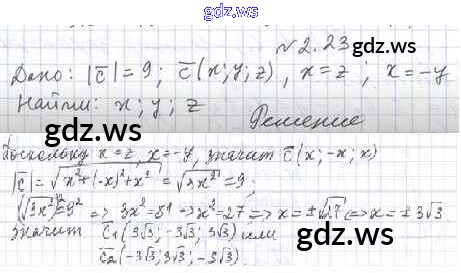 gdz.ws
№2.23
Дано: |c̅|=9; c̅(x;y;z), x=z; x=-y
Найти: x; y; z
gdz.ws
Решение
Поскольку x=z, x=-y, значит c̅(x;-x;x)
|c̅|=√(x²+(-x)²+x²)=√(3x²)=9;
(√(3x²))²=9² => 3x²=81 => x²=27 => x=±√27 => x=±3√3
значит c̅₁(3√3; -3√3; 3√3) или
c̅₂(-3√3; 3√3; -3√3)
gdz.ws
gdz.ws